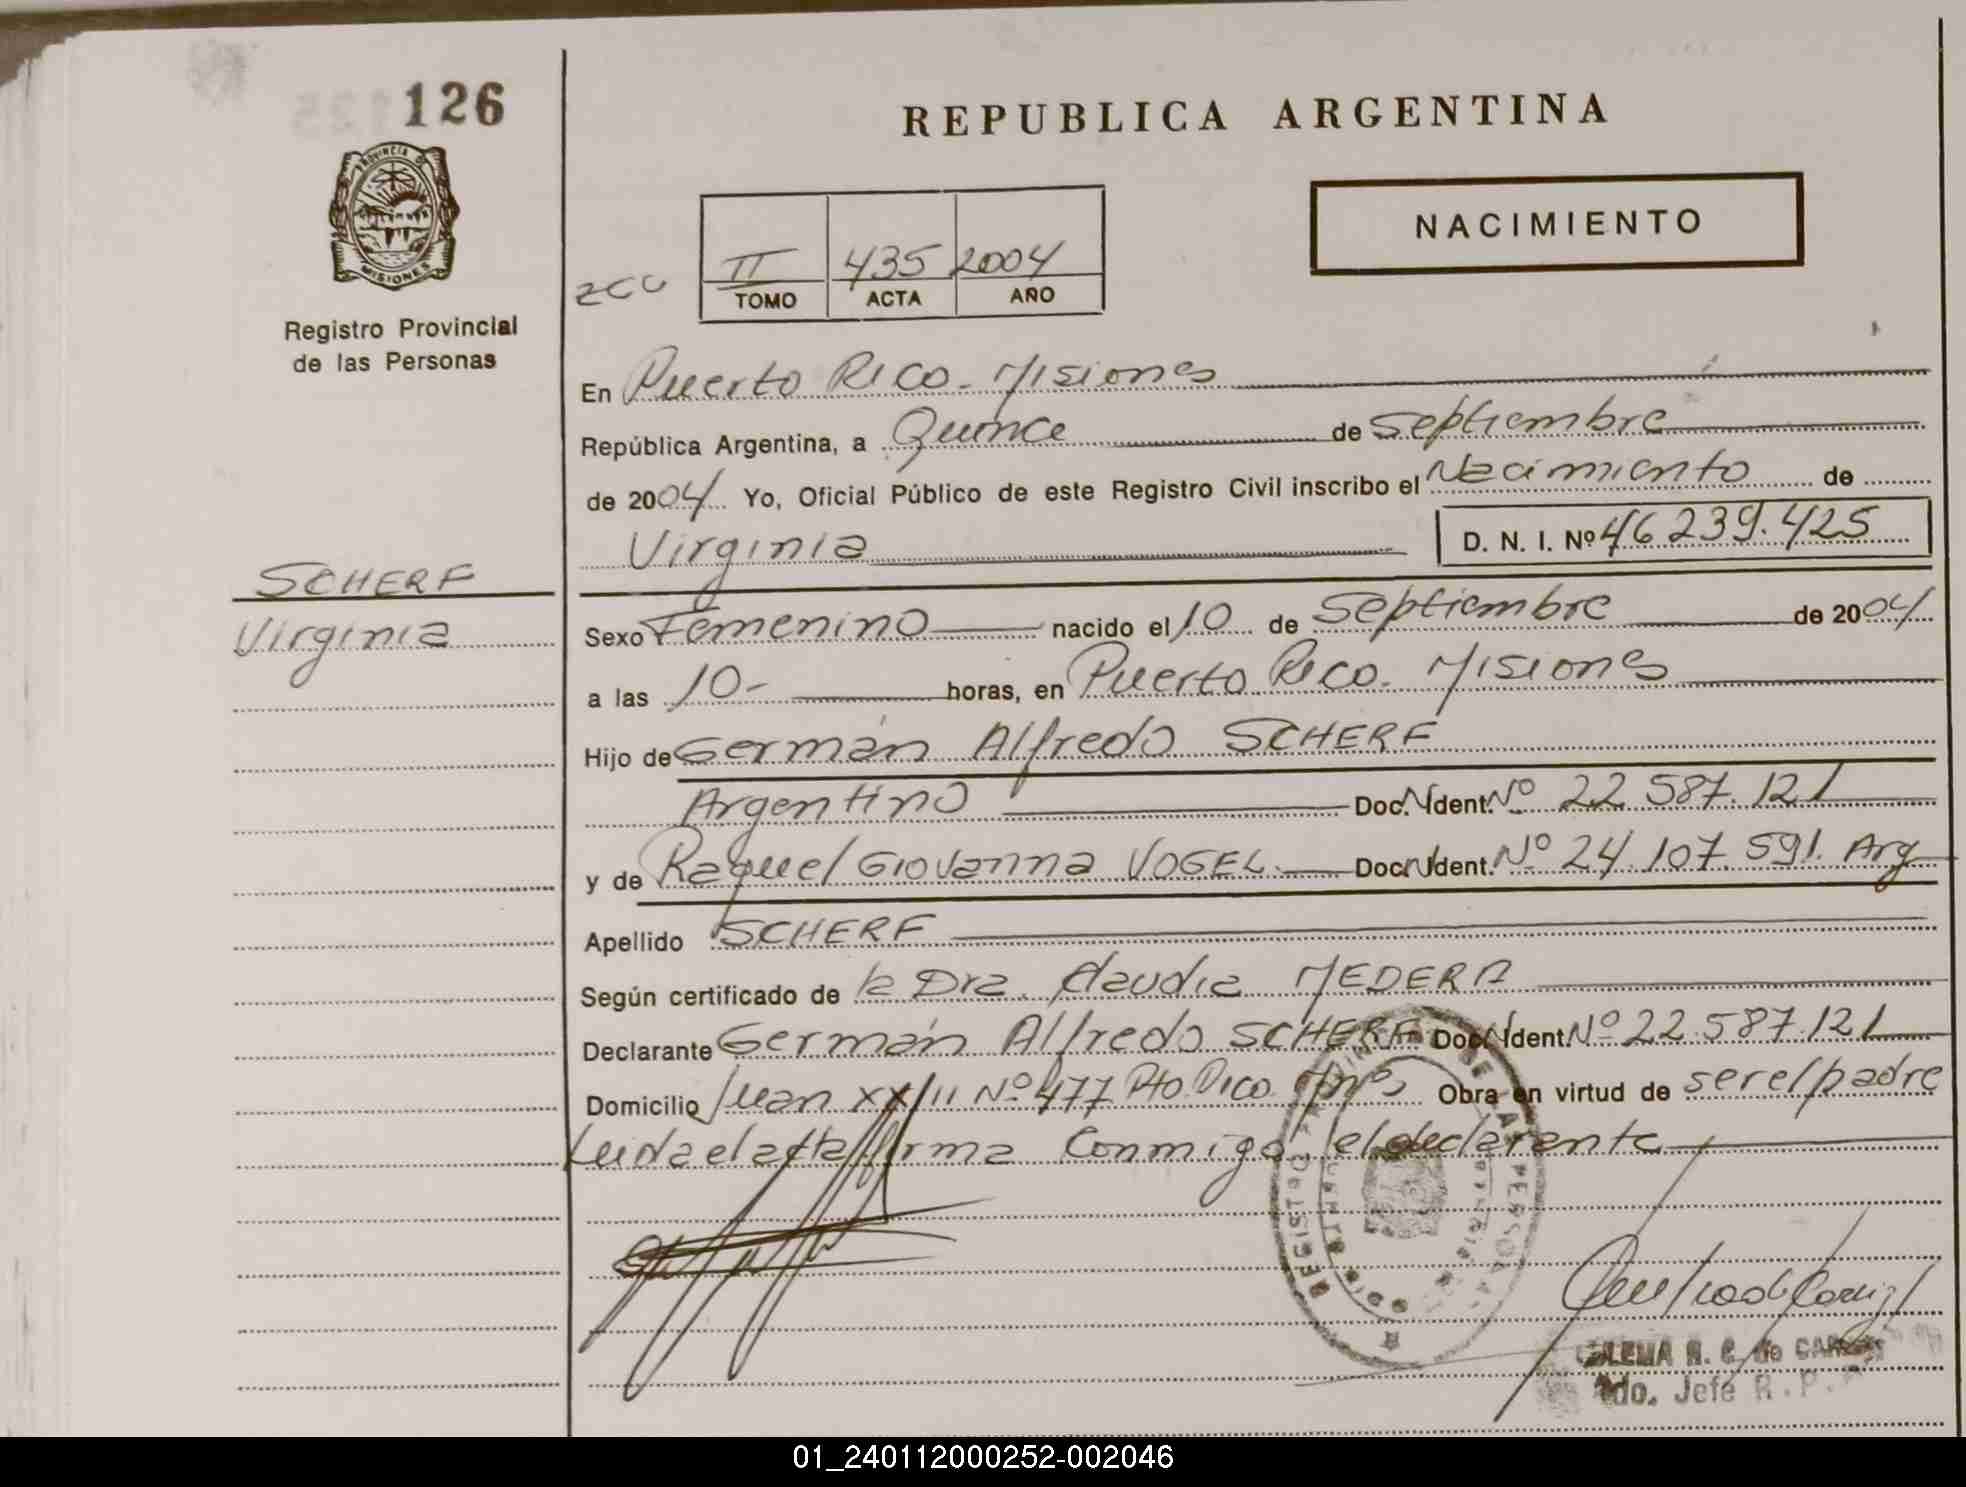 126
REPUBLICA ARGENTINA
PROVINCIA DE
MISIONES
Registro Provincial
de las Personas
NACIMIENTO
II 435 2004
TOMO ACTA AÑO
En Puerto Rico. Misiones
República Argentina, a Quince de Septiembre
de 2004 Yo, Oficial Público de este Registro Civil inscribo el Nacimiento de
Virginia D. N. I. Nº 46 239.425
SCHERF
Virginia
Sexo Femenino nacido el 10 de Septiembre de 2004
a las 10- horas, en Puerto Rico. Misiones
Hijo de Germán Alfredo SCHERF
Argentino Doc. Ident. Nº 22 587.121
y de Raquel Giovanna VOGEL Doc. Ident. Nº 24.107.591. Arg
Apellido SCHERF
Según certificado de la Dra. Claudia MEDERA
Declarante Germán Alfredo SCHERF Doc. Ident Nº 22 587.121
Domicilio Juan XXIII Nº 477 Pto. Rico Obra en virtud de ser el padre
Leida el acta firma Conmigo el declarante
REGISTRO PROVINCIAL DE LAS PERSONAS
do. Jefe R. P.
01_240112000252-002046